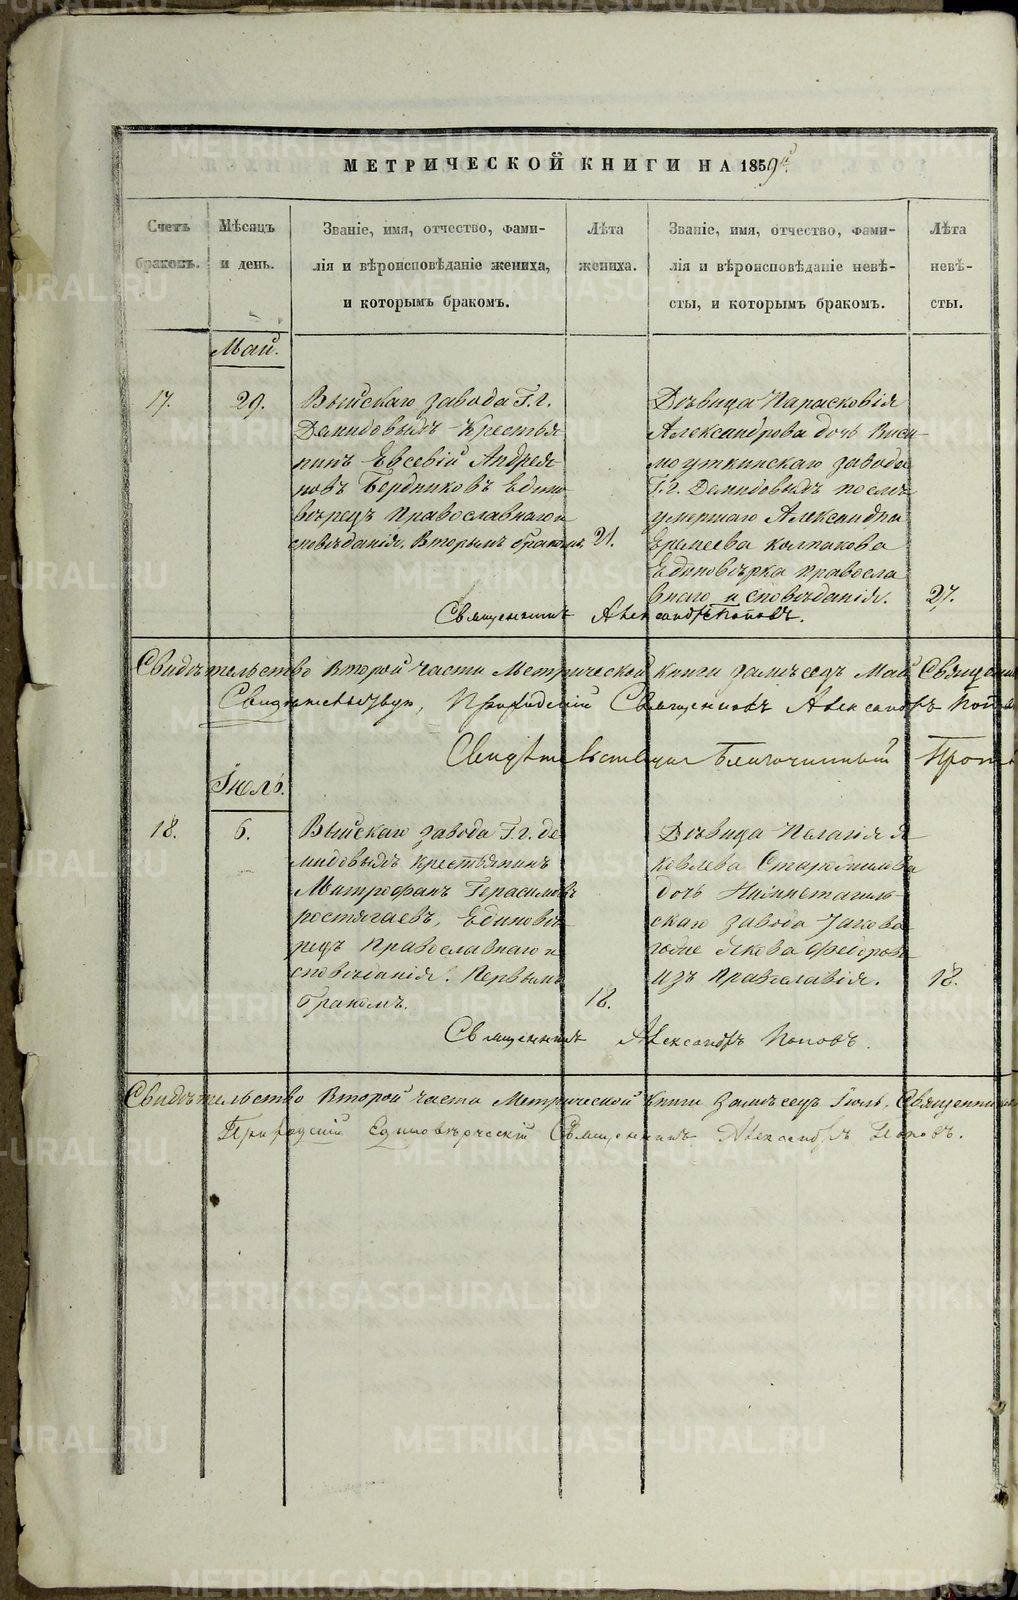 МЕТРИЧЕСКОЙ КНИГИ НА 1859й.
Счетъ браковъ.
Мѣсяцъ и день.
Званіе, имя, отчество, фами-
лія и вѣроисповѣданіе жениха,
и которымъ бракомъ.
Лѣта жениха.
Званіе, имя, отчество, фами-
лія и вѣроисповѣданіе невѣ-
сты, и которымъ бракомъ.
Лѣта невѣ-
сты.
Май.
17.
29.
Выйскаго завода Г.г.
Демидовыхъ Крестья
нинъ Евсевій Андрея
новъ Бердниковъ Едино
вѣрецъ Православнаго и
сповѣданія. Вторымъ бракомъ.
21.
Дѣвица Парасковія
Александрова дочь Виси
моуткинскаго завода
Г.г. Демидовыхъ послѣ
умершаго Александра
Еремеева Колпакова
Единовѣрка Правосла
внаго исповѣданія.
27.
Священникъ Александръ Поповъ.
Свидѣтельство Второй части Метрической книги за мѣсецъ Май Священни
Свидѣтельствую, Приходскій Священникъ Александръ Попов
Свидѣтельствовалъ Благочинный Прот
Іюль.
18.
6.
Выйскаго завода Г.г. Де
мидовыхъ Крестьянинъ
Митрофанъ Герасимовъ
ростягаевъ, Единовѣ
рецъ Православнаго и
сповѣданія. Первымъ
бракомъ.
18.
Дѣвица Пелагія Я
ковлева
дочь Нижнетагиль
скаго завода
Якова Федоров
изъ Православія.
18.
Священникъ Александръ Поповъ.
Свидѣтельство Второй части Метрической Книги за мѣсецъ Іюль. Священник
Приходскій Единовѣрческій Священникъ Александръ Поповъ.